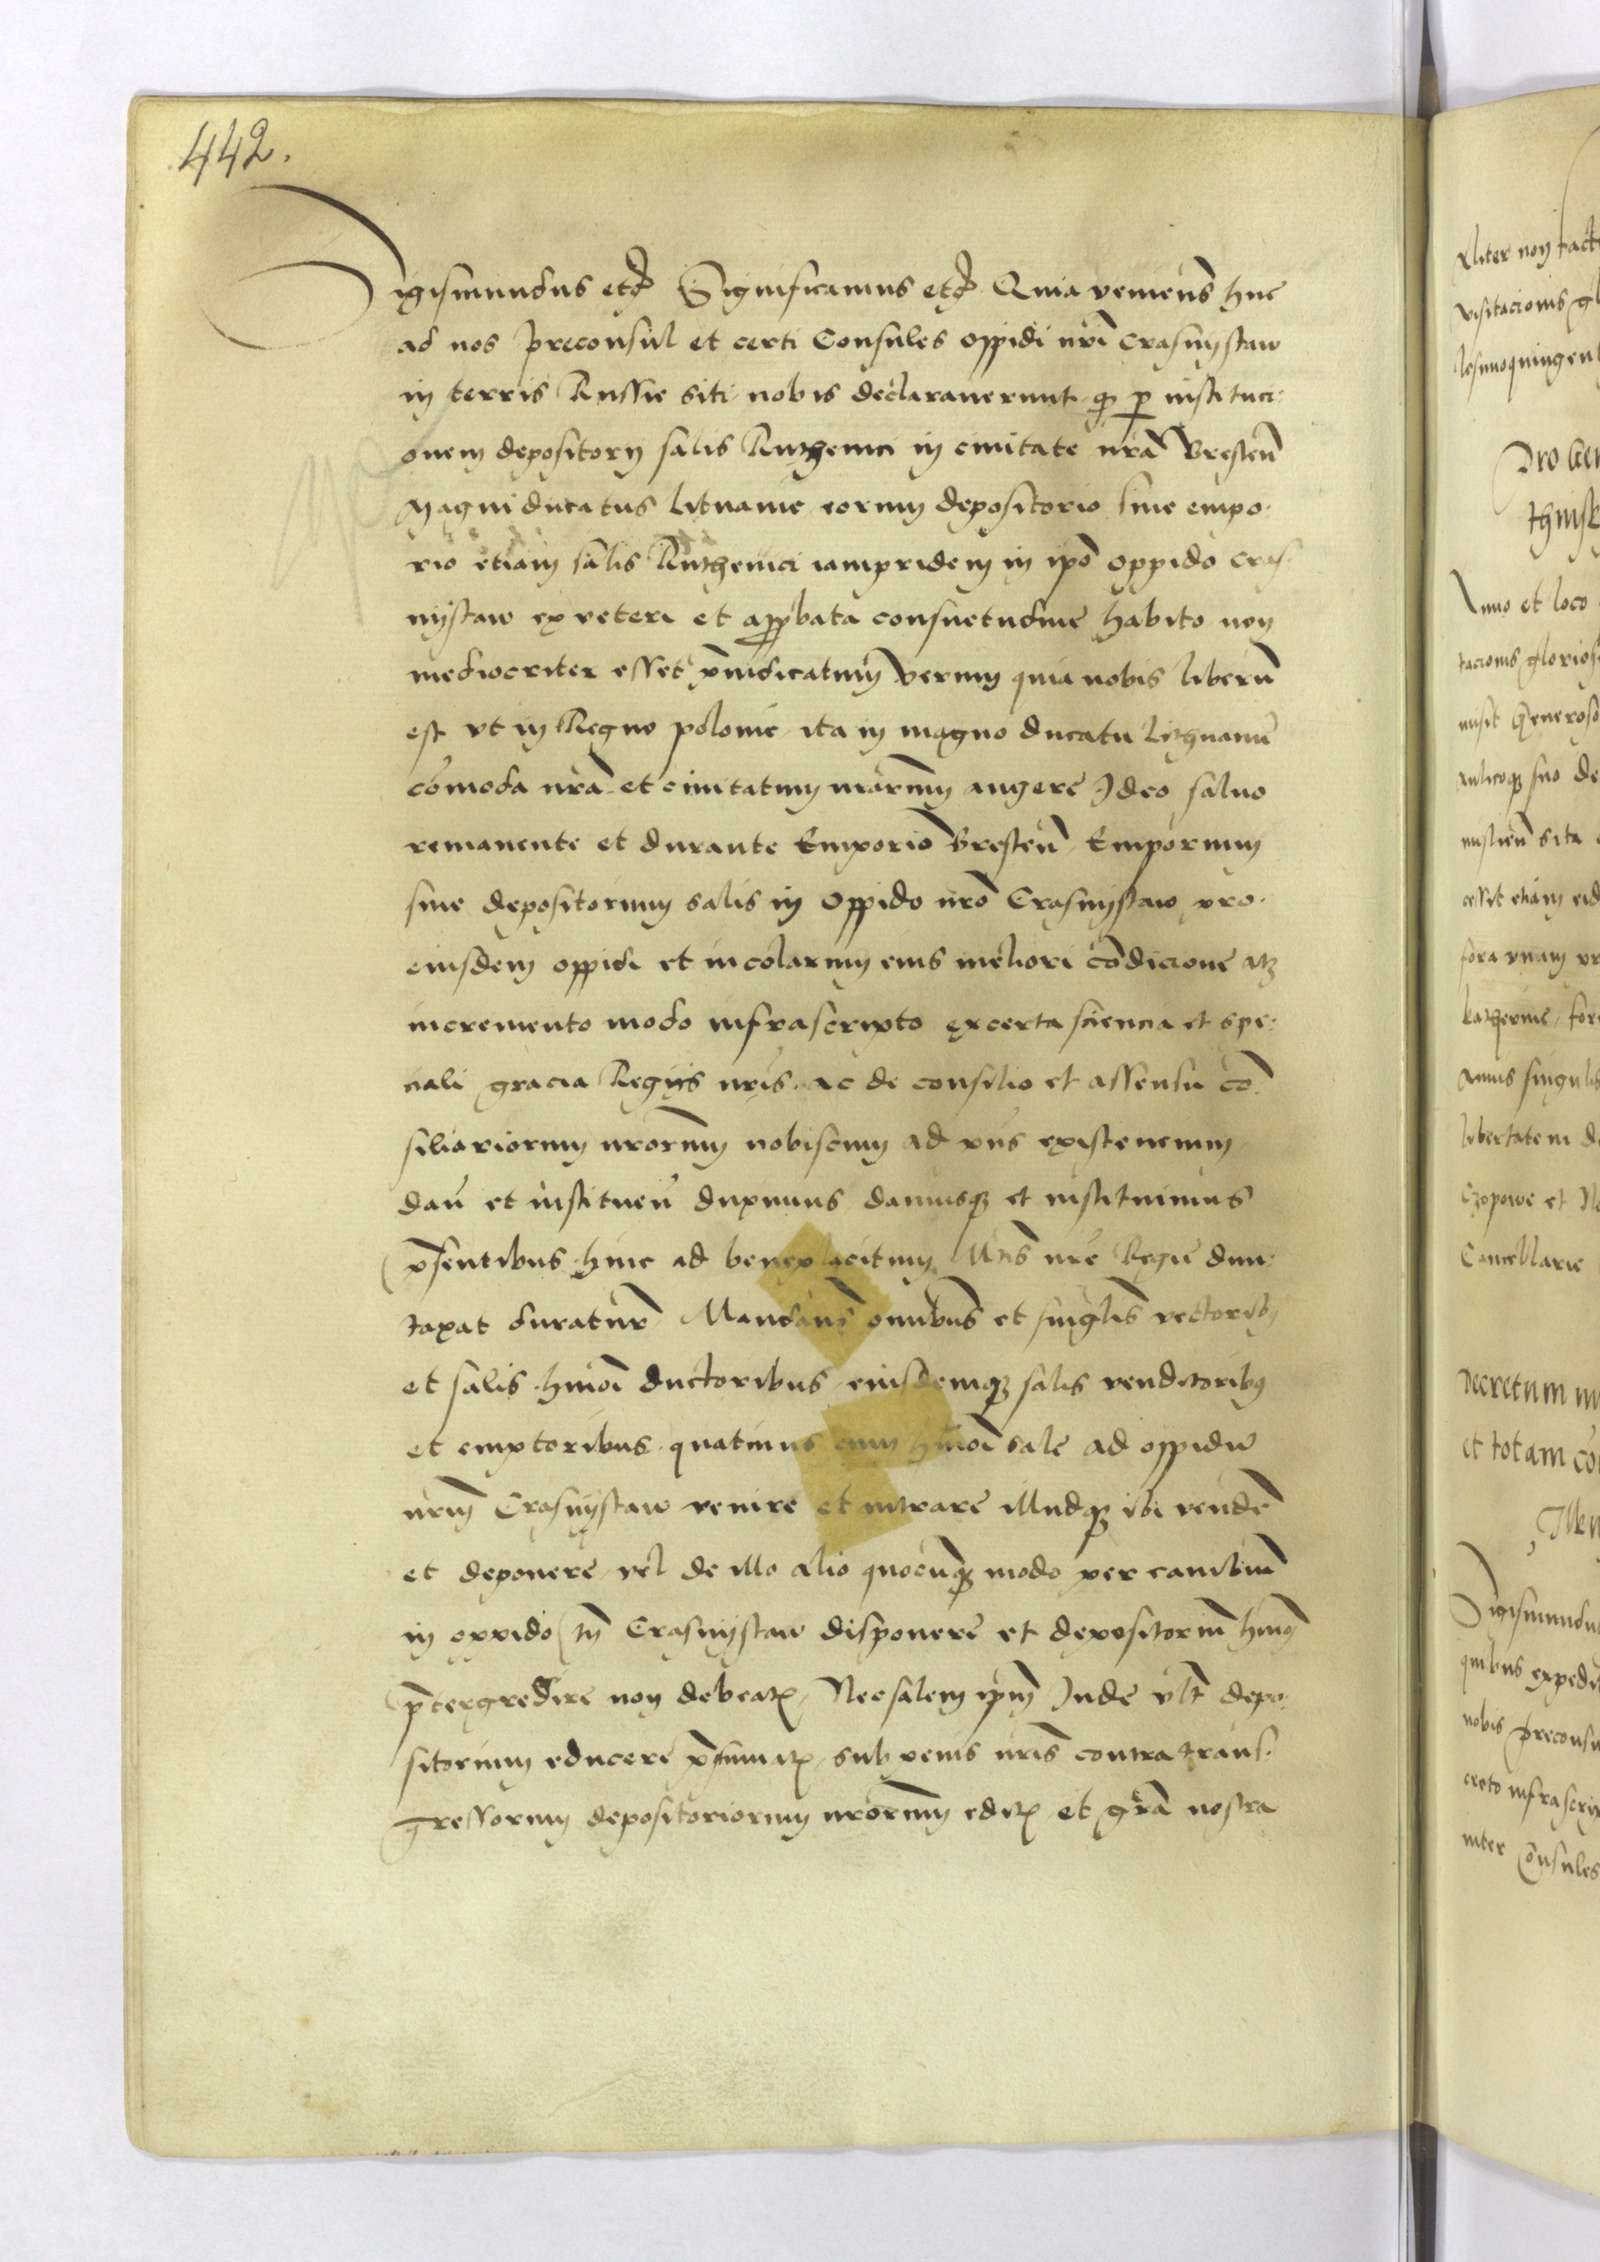 442.
Sigismundus etc̃ Significamus etc̃ Quia venien̄s huc
ad nos preconsul et certi Consules oppidi nr̄i Crasnystaw
in terris Russie siti nobis declaraverunt q̄ꝫ ꝑ instituci-
onem depositorij salis Ruthenici in civitate nr̄a Bresteñ
Magniducatus Lituanie eorum depositorio sive empo-
rio etiam salis Ruthenici iampridem in ip̄o oppido Cras-
nystaw ex veteri et app̄bata consuetudine habito non
mediocriter esset p̄iudicatum verum quia nobis liberū
est ut in Regno polonie ita in magno ducatu Lithuanie
cōmoda nr̄a et civitatum nr̄arum augere Ideo salvo
remanente et durante Emporio Bresteñ Emporium
sive depositorium salis in oppido nr̄o Crasnystaw pro
eiusdem oppidi et incolarum eius meliori cōndicione atqꝫ
incremento modo infrascripto ex certa sciencia et spe-
ciali gracia Regijs nr̄is ac de consilio et assensu cō-
siliariorum nr̄orum nobiscum ad p̄ns existencium
dañ et instituen̄ duximus damusqꝫ et instituimus
p̄sentibus hinc ad beneplacitum Mtis nr̄e Regie dun-
taxat duratur̄ Mandan̄s omnibus et singulis vectoribus
et salis hmōi ductoribus eiusdemqꝫ salis venditoribus
et emptoribus quatinus cum hmōi sale ad oppidū
nr̄um Crasnystaw venire et intrare illudqꝫ ibi vender̄
et deponere vel de illo alio quocunqꝫ modo per cambium
in oppido Crasnystaw disponere et depositorium
p̄tergredire non debeatꝭ Nec salem ip̄m Inde ult̄ depo-
sitorium educere p̄sumatꝭ sub penis nr̄is contra trans-
gressorum depositoriorum nr̄orum editꝭ et gr̄a nostra
Aliter non fact
visitacionis gl
lesimoquingent
Pro
Anno et loco
tacionis glorios
misit Generoso
aulicoqꝫ suo de
sita
cessit etiam eid
fora unam
Katherine for
Annis singulis
libertatem de
et
Cancellarie
Decretum
et totam cō
Sigismundu
quibus expedit
nobis preconsu
creto infrascrip
inter Cōnsules